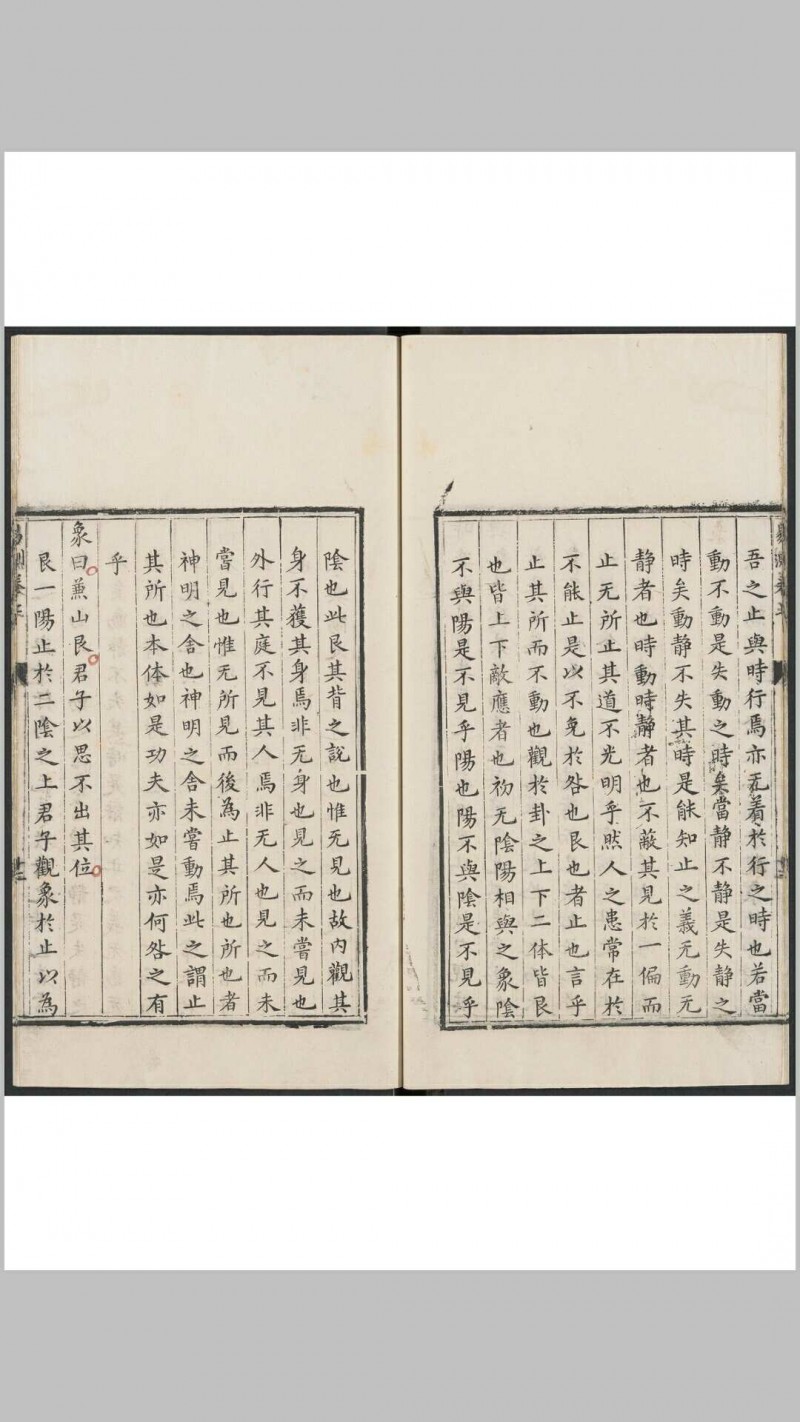 吾之止與時行焉亦无着於行之時也若當
動不動是失動之時矣當静不静是失静之
時矣動静不失其時是能知止之義无動无
静者也時動時静者也不蔽其見於一偏而
止无所止其道不光明乎然人之患常在於
不能止是以不免於咎也艮也者止也言乎
止其所而不動也觀於卦之上下二体皆艮
也皆上下敵應者也初无陰陽相與之象陰
不與陽是不見乎陽也陽不與陰是不見乎
陰也此艮其背之說也惟无見也故内觀其
身不獲其身焉非无身也見之而未嘗見也
外行其庭不見其人焉非无人也見之而未
嘗見也惟无所見而後為止其所也所也者
神明之舍也神明之舍未嘗動焉此之謂止
其所也本体如是功夫亦如是亦何咎之有
乎
象曰兼山艮君子以思不出其位
艮一陽止於二陰之上君子觀象於止以為